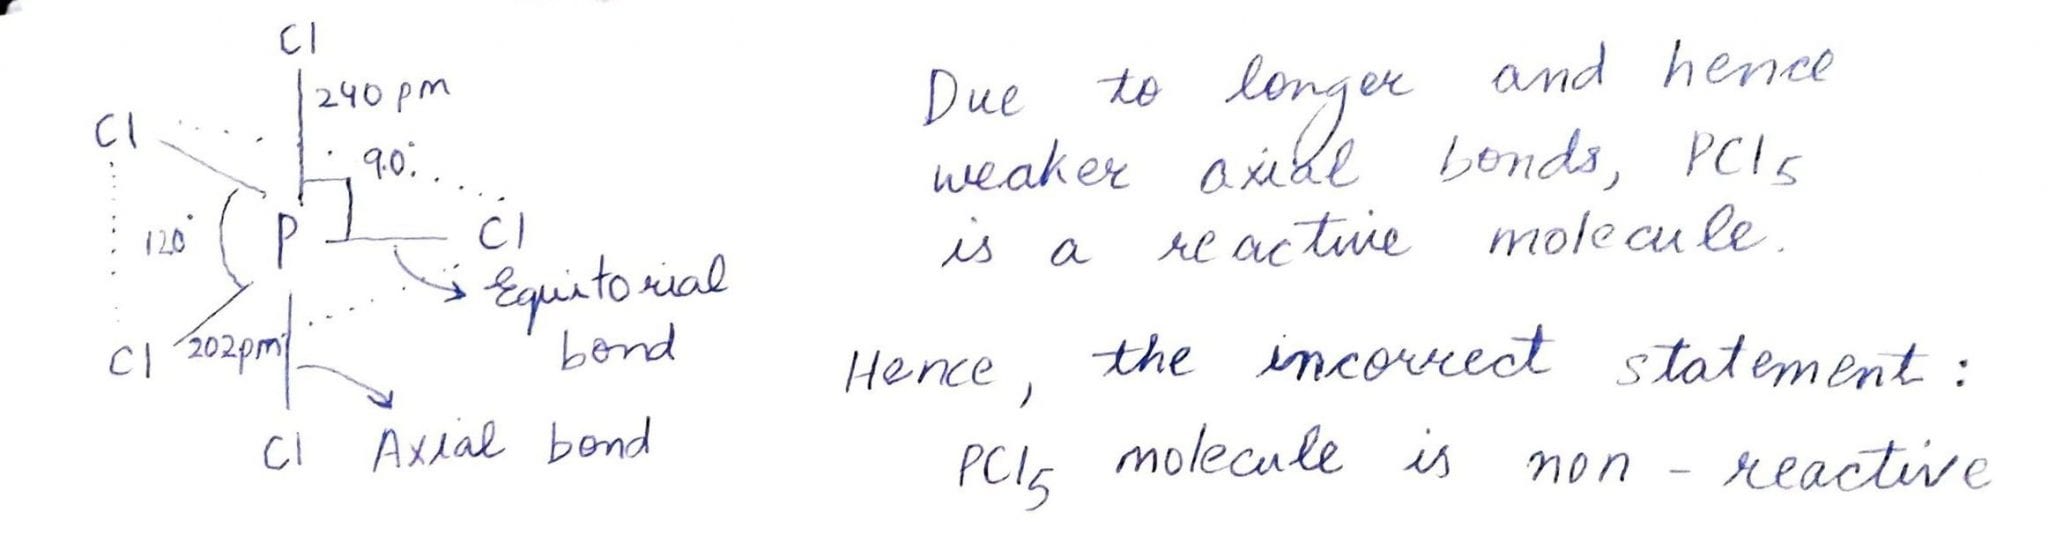 Cl
240 pm
Cl
90°
120°
P
Cl
Equitorial
bond
Cl
202pm
Cl
Axial bond
Due to longer and hence
weaker axial bonds, PCl5
is a reactive molecule.
Hence, the incorrect statement:
PCl5 molecule is non - reactive